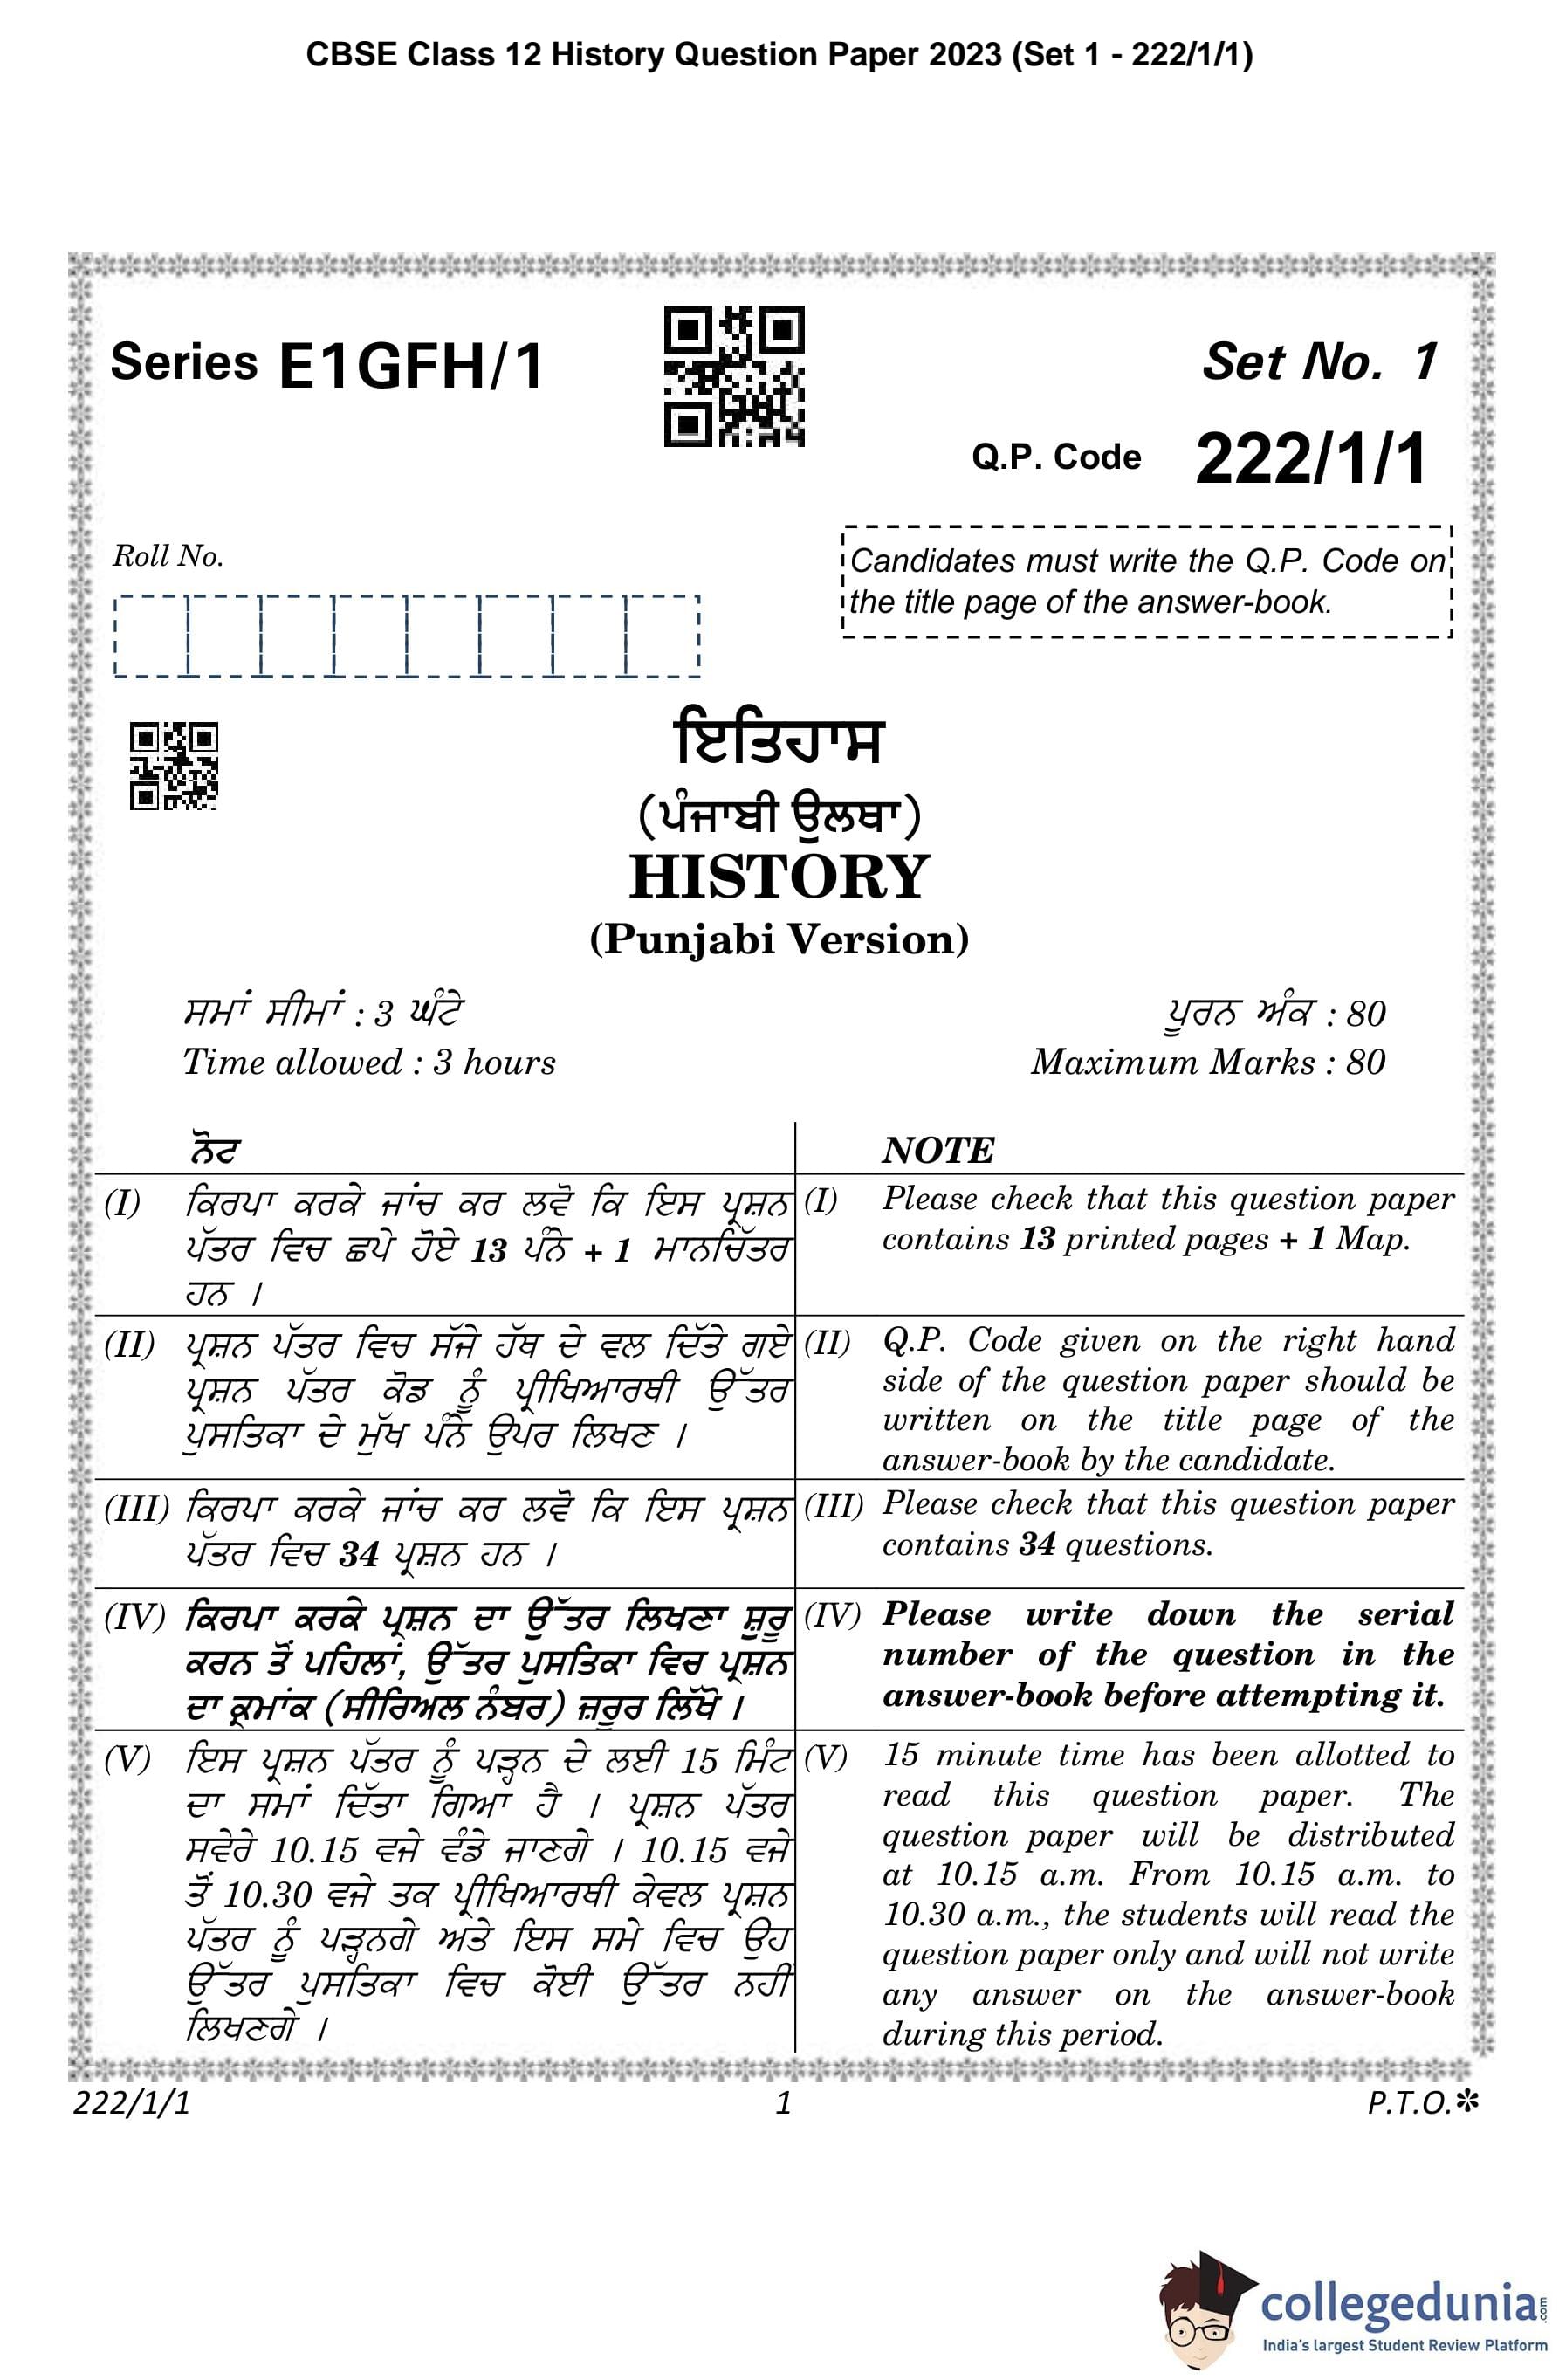 CBSE Class 12 History Question Paper 2023 (Set 1 - 222/1/1)
Series E1GFH/1
Set No. 1
Q.P. Code 222/1/1
Roll No.
Candidates must write the Q.P. Code on
the title page of the answer-book.
ਇਤਿਹਾਸ
(ਪੰਜਾਬੀ ਉਲਥਾ)
HISTORY
(Punjabi Version)
ਸਮਾਂ ਸੀਮਾਂ : 3 ਘੰਟੇ
ਪੂਰਨ ਅੰਕ : 80
Time allowed : 3 hours
Maximum Marks : 80
ਨੋਟ
(I) ਕਿਰਪਾ ਕਰਕੇ ਜਾਂਚ ਕਰ ਲਵੋ ਕਿ ਇਸ ਪ੍ਰਸ਼ਨ
ਪੱਤਰ ਵਿਚ ਛਪੇ ਹੋਏ 13 ਪੰਨੇ + 1 ਮਾਨਚਿੱਤਰ
ਹਨ ।
(II) ਪ੍ਰਸ਼ਨ ਪੱਤਰ ਵਿਚ ਸੱਜੇ ਹੱਥ ਦੇ ਵਲ ਦਿੱਤੇ ਗਏ
ਪ੍ਰਸ਼ਨ ਪੱਤਰ ਕੋਡ ਨੂੰ ਪ੍ਰੀਖਿਆਰਥੀ ਉੱਤਰ
ਪੁਸਤਿਕਾ ਦੇ ਮੁੱਖ ਪੰਨੇ ਉਪਰ ਲਿਖਣ ।
(III) ਕਿਰਪਾ ਕਰਕੇ ਜਾਂਚ ਕਰ ਲਵੋ ਕਿ ਇਸ ਪ੍ਰਸ਼ਨ
ਪੱਤਰ ਵਿਚ 34 ਪ੍ਰਸ਼ਨ ਹਨ ।
(IV) ਕਿਰਪਾ ਕਰਕੇ ਪ੍ਰਸ਼ਨ ਦਾ ਉੱਤਰ ਲਿਖਣਾ ਸ਼ੁਰੂ
ਕਰਨ ਤੋਂ ਪਹਿਲਾਂ, ਉੱਤਰ ਪੁਸਤਿਕਾ ਵਿਚ ਪ੍ਰਸ਼ਨ
ਦਾ ਕ੍ਰਮਾਂਕ (ਸੀਰਿਅਲ ਨੰਬਰ) ਜ਼ਰੂਰ ਲਿੱਖੋ ।
(V) ਇਸ ਪ੍ਰਸ਼ਨ ਪੱਤਰ ਨੂੰ ਪੜ੍ਹਨ ਦੇ ਲਈ 15 ਮਿੰਟ
ਦਾ ਸਮਾਂ ਦਿੱਤਾ ਗਿਆ ਹੈ । ਪ੍ਰਸ਼ਨ ਪੱਤਰ
ਸਵੇਰੇ 10.15 ਵਜੇ ਵੰਡੇ ਜਾਣਗੇ । 10.15 ਵਜੇ
ਤੋਂ 10.30 ਵਜੇ ਤਕ ਪ੍ਰੀਖਿਆਰਥੀ ਕੇਵਲ ਪ੍ਰਸ਼ਨ
ਪੱਤਰ ਨੂੰ ਪੜ੍ਹਨਗੇ ਅਤੇ ਇਸ ਸਮੇ ਵਿਚ ਉਹ
ਉੱਤਰ ਪੁਸਤਿਕਾ ਵਿਚ ਕੋਈ ਉੱਤਰ ਨਹੀਂ
ਲਿਖਣਗੇ ।
NOTE
(I) Please check that this question paper
contains 13 printed pages + 1 Map.
(II) Q.P. Code given on the right hand
side of the question paper should be
written on the title page of the
answer-book by the candidate.
(III) Please check that this question paper
contains 34 questions.
(IV) Please write down the serial
number of the question in the
answer-book before attempting it.
(V) 15 minute time has been allotted to
read this question paper. The
question paper will be distributed
at 10.15 a.m. From 10.15 a.m. to
10.30 a.m., the students will read the
question paper only and will not write
any answer on the answer-book
during this period.
222/1/1
1
P.T.O.✽
collegedunia.com
India's largest Student Review Platform